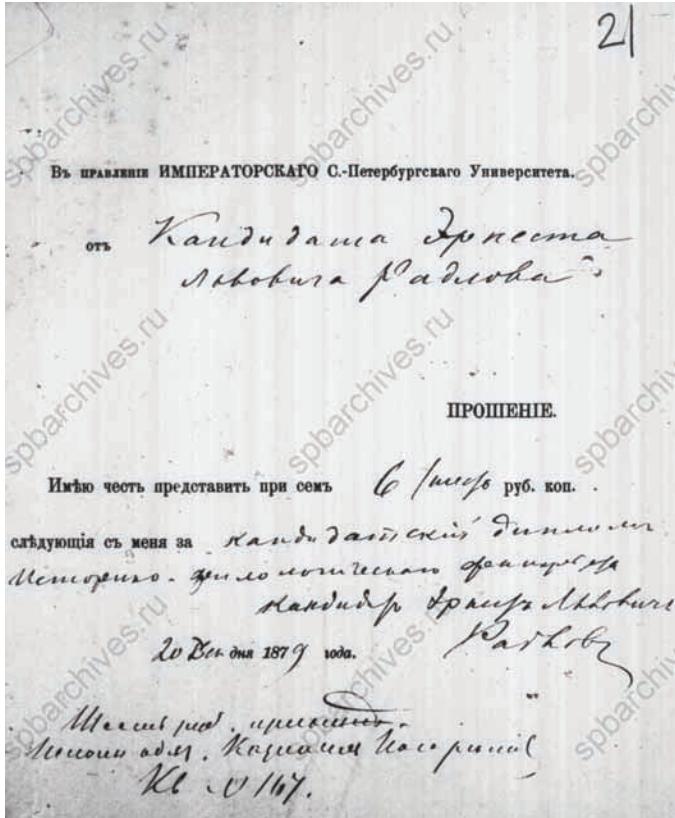 21
Въ правленіи ИМПЕРАТОРСКАГО С.-Петербургскаго Университета.
отъ Кандидата Эрнеста
Львовича Радлова
ПРОШЕНІЕ.
Имѣю честь представить при семъ 6 /шесть руб. коп.
слѣдующія съ меня за кандидатскій дипломъ
Историко-филологическаго факультета
Кандидатъ Эрнестъ Львовичъ
20 дня 1879 года. Радловъ
Шесть руб. принялъ
Казначей
Кв № 1167.
spbarchives.ru